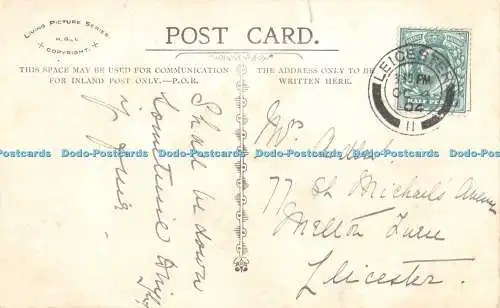 LIVING PICTURE SERIES.
COPYRIGHT.
POST CARD.
THIS SPACE MAY BE USED FOR COMMUNICATION
FOR INLAND POST ONLY.—P.O.R.
THE ADDRESS ONLY TO BE
WRITTEN HERE.
LEICESTER
PM
04
11
HALF PENNY
Shall be down
sometime
Mrs
77 St Michaels Avenue
Melton Turn
Leicester.
Dodo-Postcards Dodo-Postcards Dodo-Postcards Dodo-Postcards Dodo-Postcards